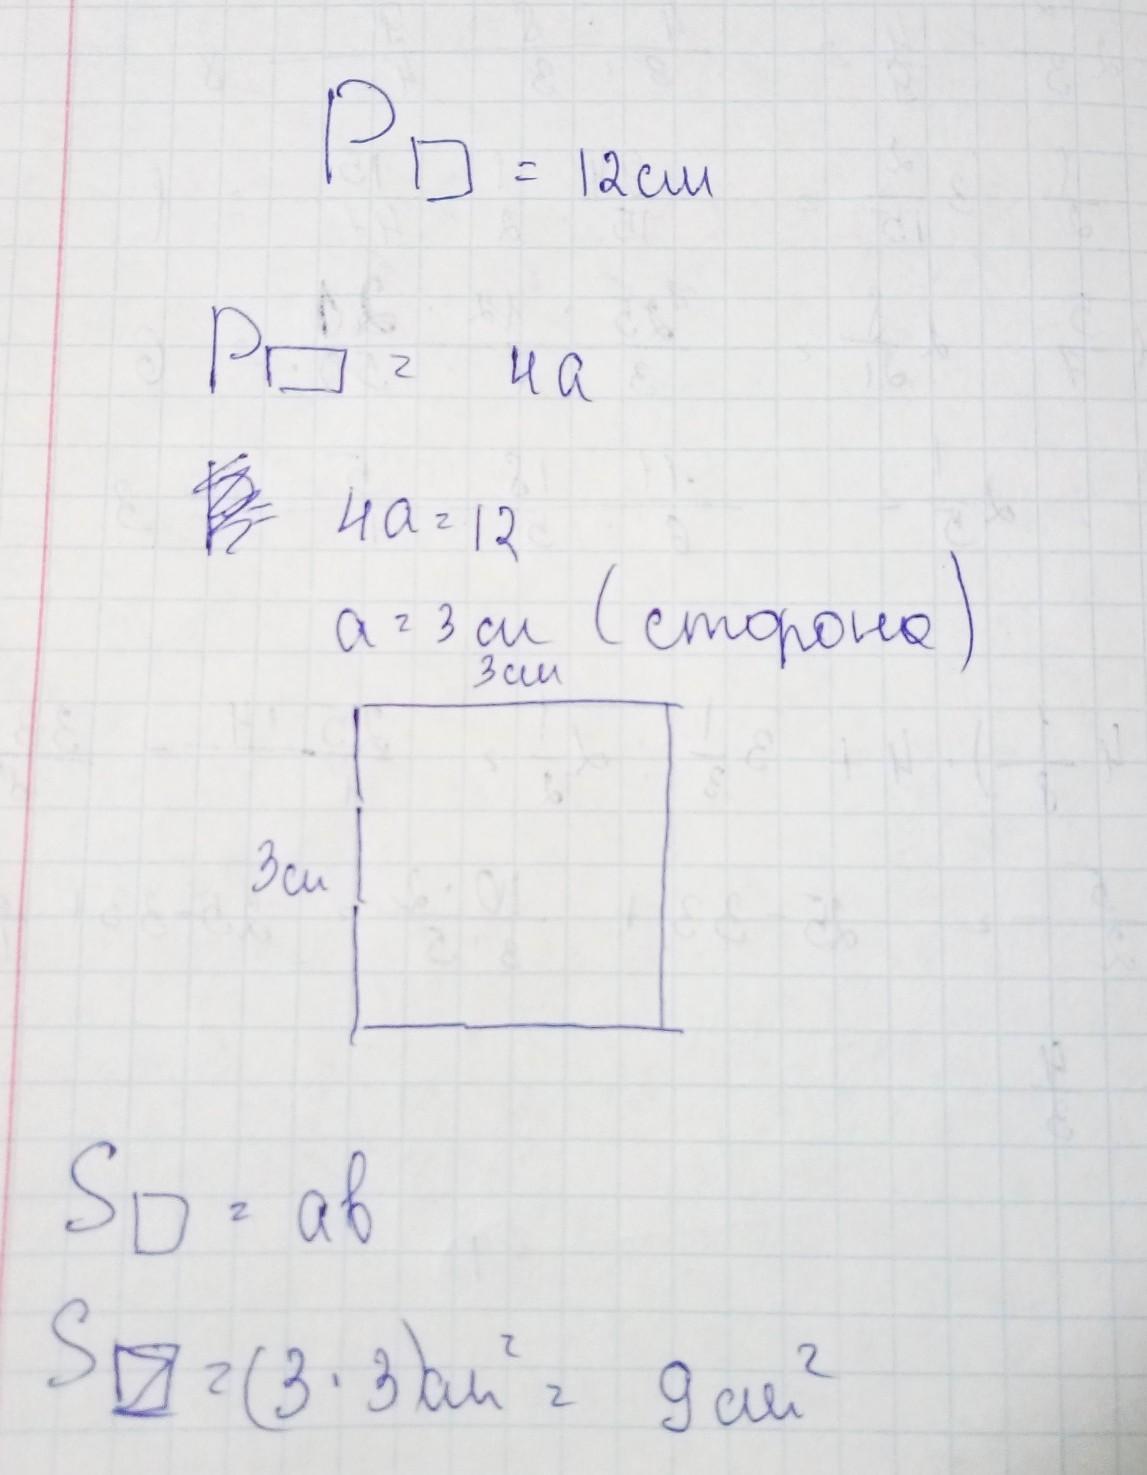 P□ = 12см
P▭ = 4a
4a = 12
a = 3 см (сторона)
3см
3см
S□ = ab
S□ = (3 · 3)см² = 9 см²